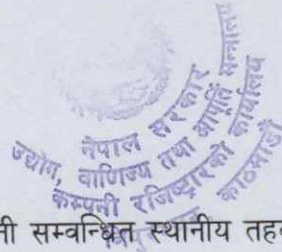 नेपाल सरकार
उद्योग, वाणिज्य तथा आपूर्ति मन्त्रालय
कम्पनी रजिष्ट्रारको कार्यालय
काठमाडौं
नी सम्वन्धित स्थानीय तहव